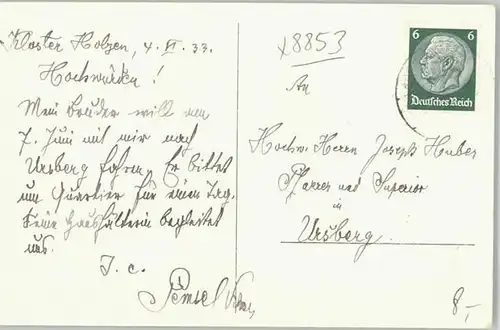 Kloster Holzen, 4. VI. 33.
Hochwürden!
Mein Bruder will am
7. Juni mit mir nach
Ursberg fahren. Er bittet
um Quartier für einen Tag.
Seine Haushälterin begleitet
uns.
J. c.
x8853
An
Hochw. Herrn Joseph Huber
Pfarrer und Superior
in
Ursberg.
6 6
Deutsches Reich
8,-